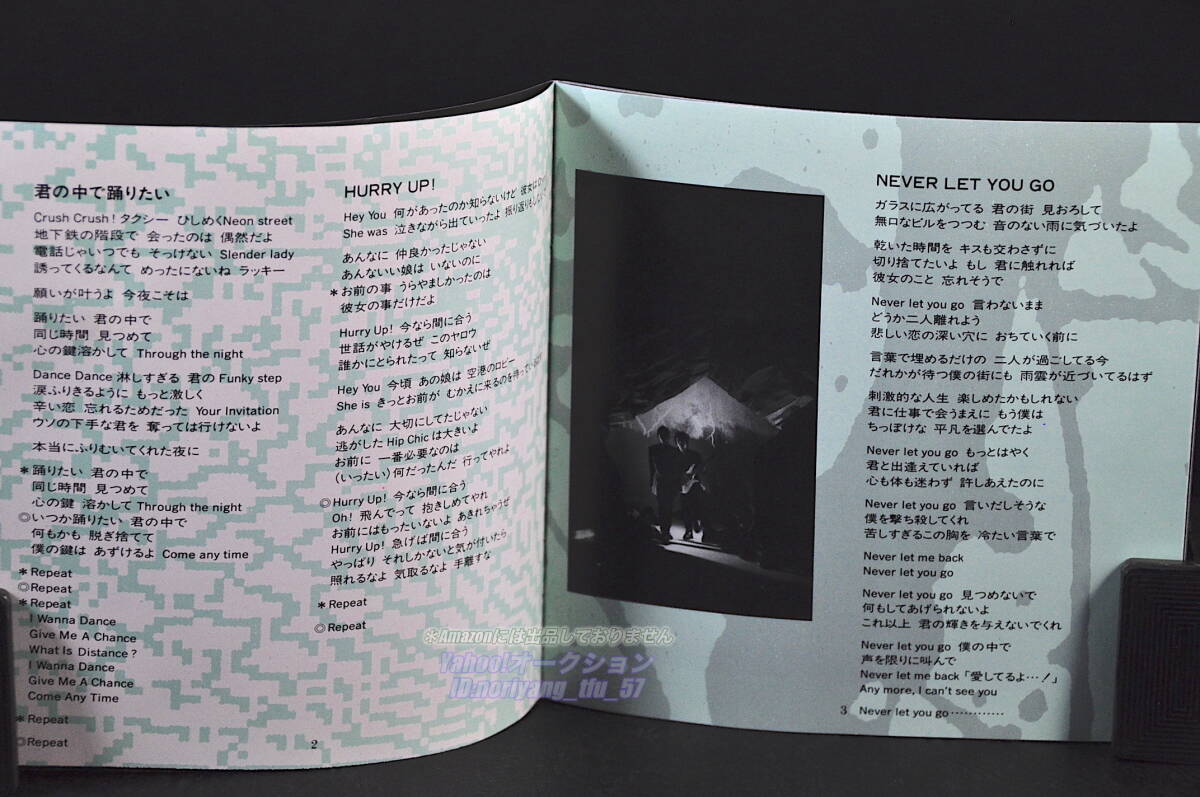 君の中で踊りたい
Crush Crush! タクシー ひしめくNeon street
地下鉄の階段で 会ったのは 偶然だよ
電話じゃいつでも そっけない Slender lady
誘ってくるなんて めったにないね ラッキー
願いが叶うよ 今夜こそは
踊りたい 君の中で
同じ時間 見つめて
心の鍵溶かして Through the night
Dance Dance 淋しすぎる 君の Funky step
涙ふりきるように もっと激しく
辛い恋 忘れるためだった Your Invitation
ウソの下手な君を 奪っては行けないよ
本当にふりむいてくれた夜に
*踊りたい 君の中で
同じ時間 見つめて
心の鍵 溶かして Through the night
◎いつか踊りたい 君の中で
何もかも 脱ぎ捨てて
僕の鍵は あずけるよ Come any time
*Repeat
◎Repeat
*Repeat
I Wanna Dance
Give Me A Chance
What Is Distance?
I Wanna Dance
Give Me A Chance
Come Any Time
*Repeat
◎Repeat
2
HURRY UP!
Hey You 何があったのか知らないけど 彼女は
She was 泣きながら出ていったよ 振り返りも
あんなに 仲良かったじゃない
あんないい娘は いないのに
*お前の事 うらやましかったのは
彼女の事だけだよ
Hurry Up! 今なら間に合う
世話がやけるぜ このヤロウ
誰かにとられたって 知らないぜ
Hey You 今頃 あの娘は 空港のロビー
She is きっとお前が むかえに来るのを待って
あんなに 大切にしてたじゃない
逃がした Hip Chic は大きいよ
お前に 一番必要なのは
(いったい)何だったんだ 行ってやれよ
◎Hurry Up! 今なら間に合う
Oh! 飛んでって 抱きしめてやれ
お前にはもったいないよ あきれちゃうぜ
Hurry Up! 急げば間に合う
やっぱり それしかないと気が付いたら
照れるなよ 気取るなよ 手離すな
*Repeat
◎Repeat
NEVER LET YOU GO
ガラスに広がってる 君の街 見おろして
無口なビルをつつむ 音のない雨に気づいたよ
乾いた時間を キスも交わさずに
切り捨てたいよ もし 君に触れれば
彼女のこと 忘れそうで
Never let you go 言わないまま
どうか二人離れよう
悲しい恋の深い穴に おちていく前に
言葉で埋めるだけの 二人が過ごしてる今
だれかが待つ僕の街にも 雨雲が近づいてるはず
刺激的な人生 楽しめたかもしれない
君に仕事で会うまえに もう僕は
ちっぽけな 平凡を選んでたよ
Never let you go もっとはやく
君と出逢えていれば
心も体も迷わず 許しあえたのに
Never let you go 言いだしそうな
僕を撃ち殺してくれ
苦しすぎるこの胸を 冷たい言葉で
Never let me back
Never let you go
Never let you go 見つめないで
何もしてあげられないよ
これ以上 君の輝きを与えないでくれ
Never let you go 僕の中で
声を限りに叫んで
Never let me back「愛してるよ…!」
Any more, I can't see you
Never let you go…………
3
※Amazonには出品しておりません
Yahoo!オークション
ID:noriyang_tfu_57